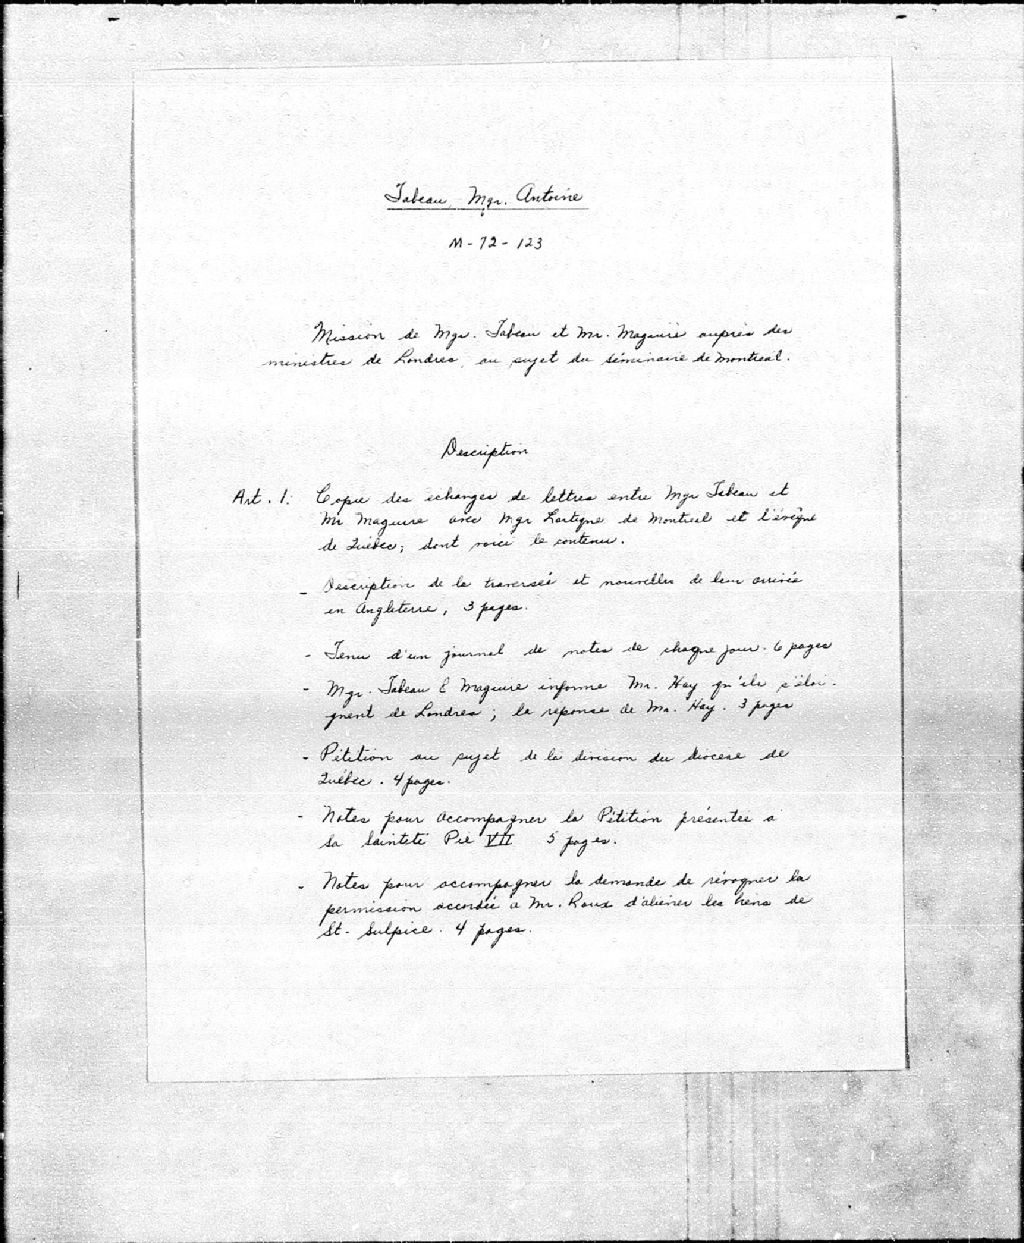 Tabeau, Mgr. Antoine
M-72-123
Mission de Mgr. Tabeau et Mr. Maguire auprès des
ministres de Londres, au sujet du séminaire de Montréal.
Description
Art. 1: Copie des échanges de lettres entre Mgr Tabeau et
Mr Maguire avec Mgr Lartigue de Montréal et l'évêque
de Québec; dont voici le contenu.
- Description de la traversée et nouvelles de leur arrivée
en Angleterre, 3 pages.
- Tenu d'un journal de notes de chaque jour. 6 pages
- Mgr. Tabeau & Maguire informe Mr. Hay qu'ils s'éloi-
gnent de Londres; la réponse de Mr. Hay. 3 pages
- Pétition au sujet de la division du diocèse de
Québec. 4 pages.
- Notes pour accompagner la Pétition présentée à
sa Sainteté Pie VII 5 pages.
- Notes pour accompagner la demande de révoquer la
permission accordée à Mr. Roux d'aliéner les biens de
St. Sulpice. 4 pages.